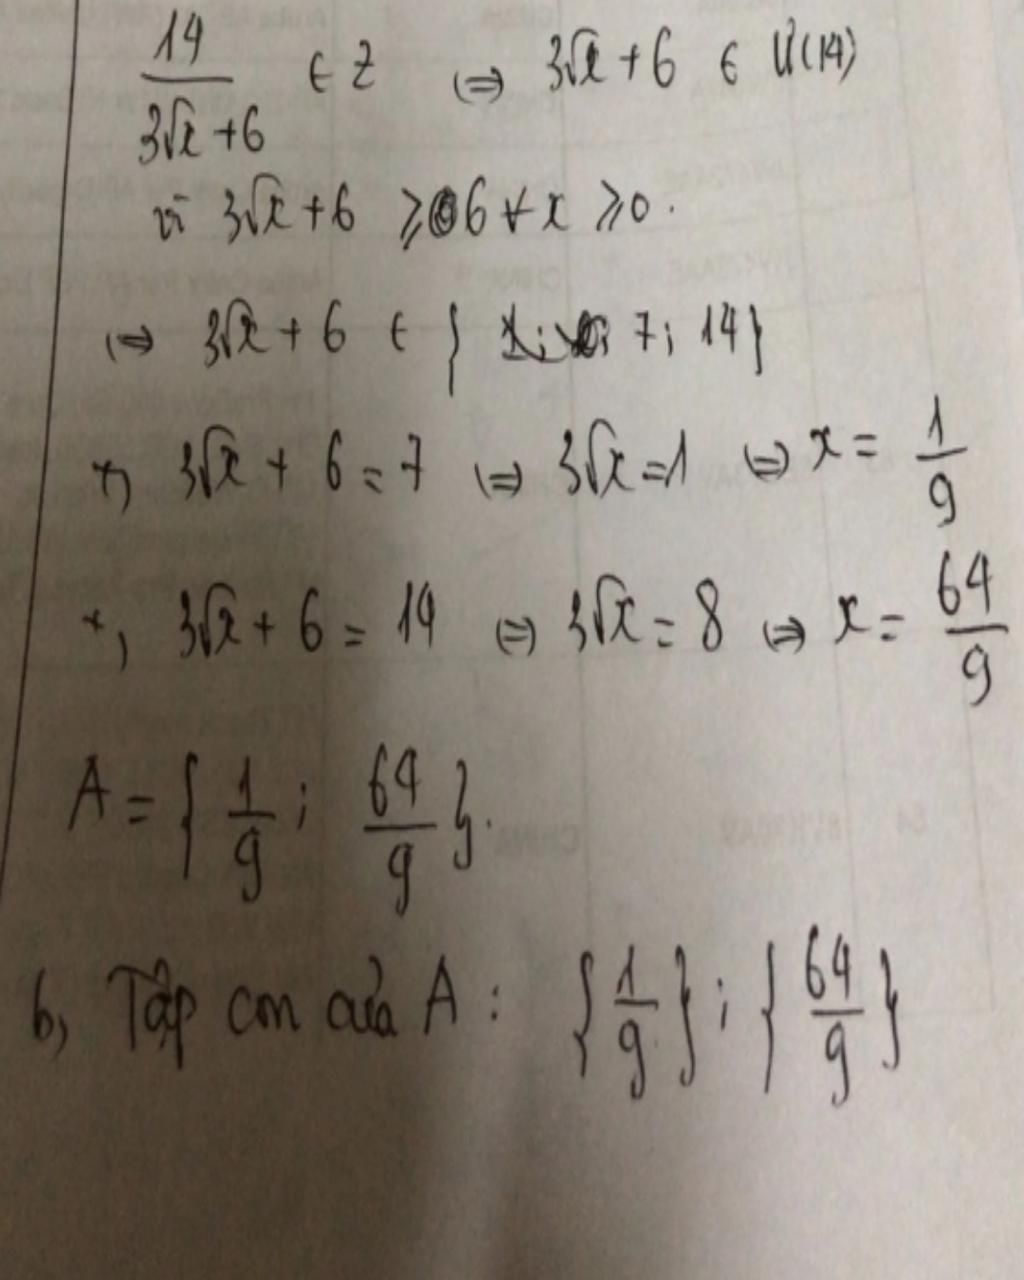 14/(3√x+6) ∈ Z ⇔ 3√x + 6 ∈ Ư(14)
vì 3√x + 6 ≥ 6 ∀ x ≥ 0.
⇔ 3√x + 6 ∈ { 7; 14}
+, 3√x + 6 = 7 ⇔ 3√x = 1 ⇔ x = 1/9
+, 3√x + 6 = 14 ⇔ 3√x = 8 ⇔ x = 64/9
A = { 1/9 ; 64/9 }.
b, Tập con của A : {1/9} ; {64/9}